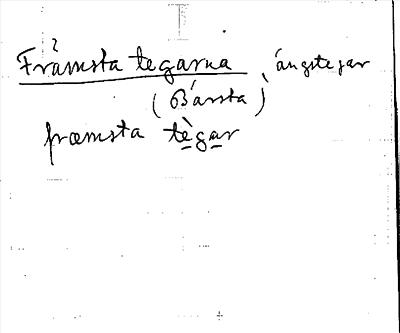 Främsta tegarna ángstegar
(Bársta)
fræmsta tègar